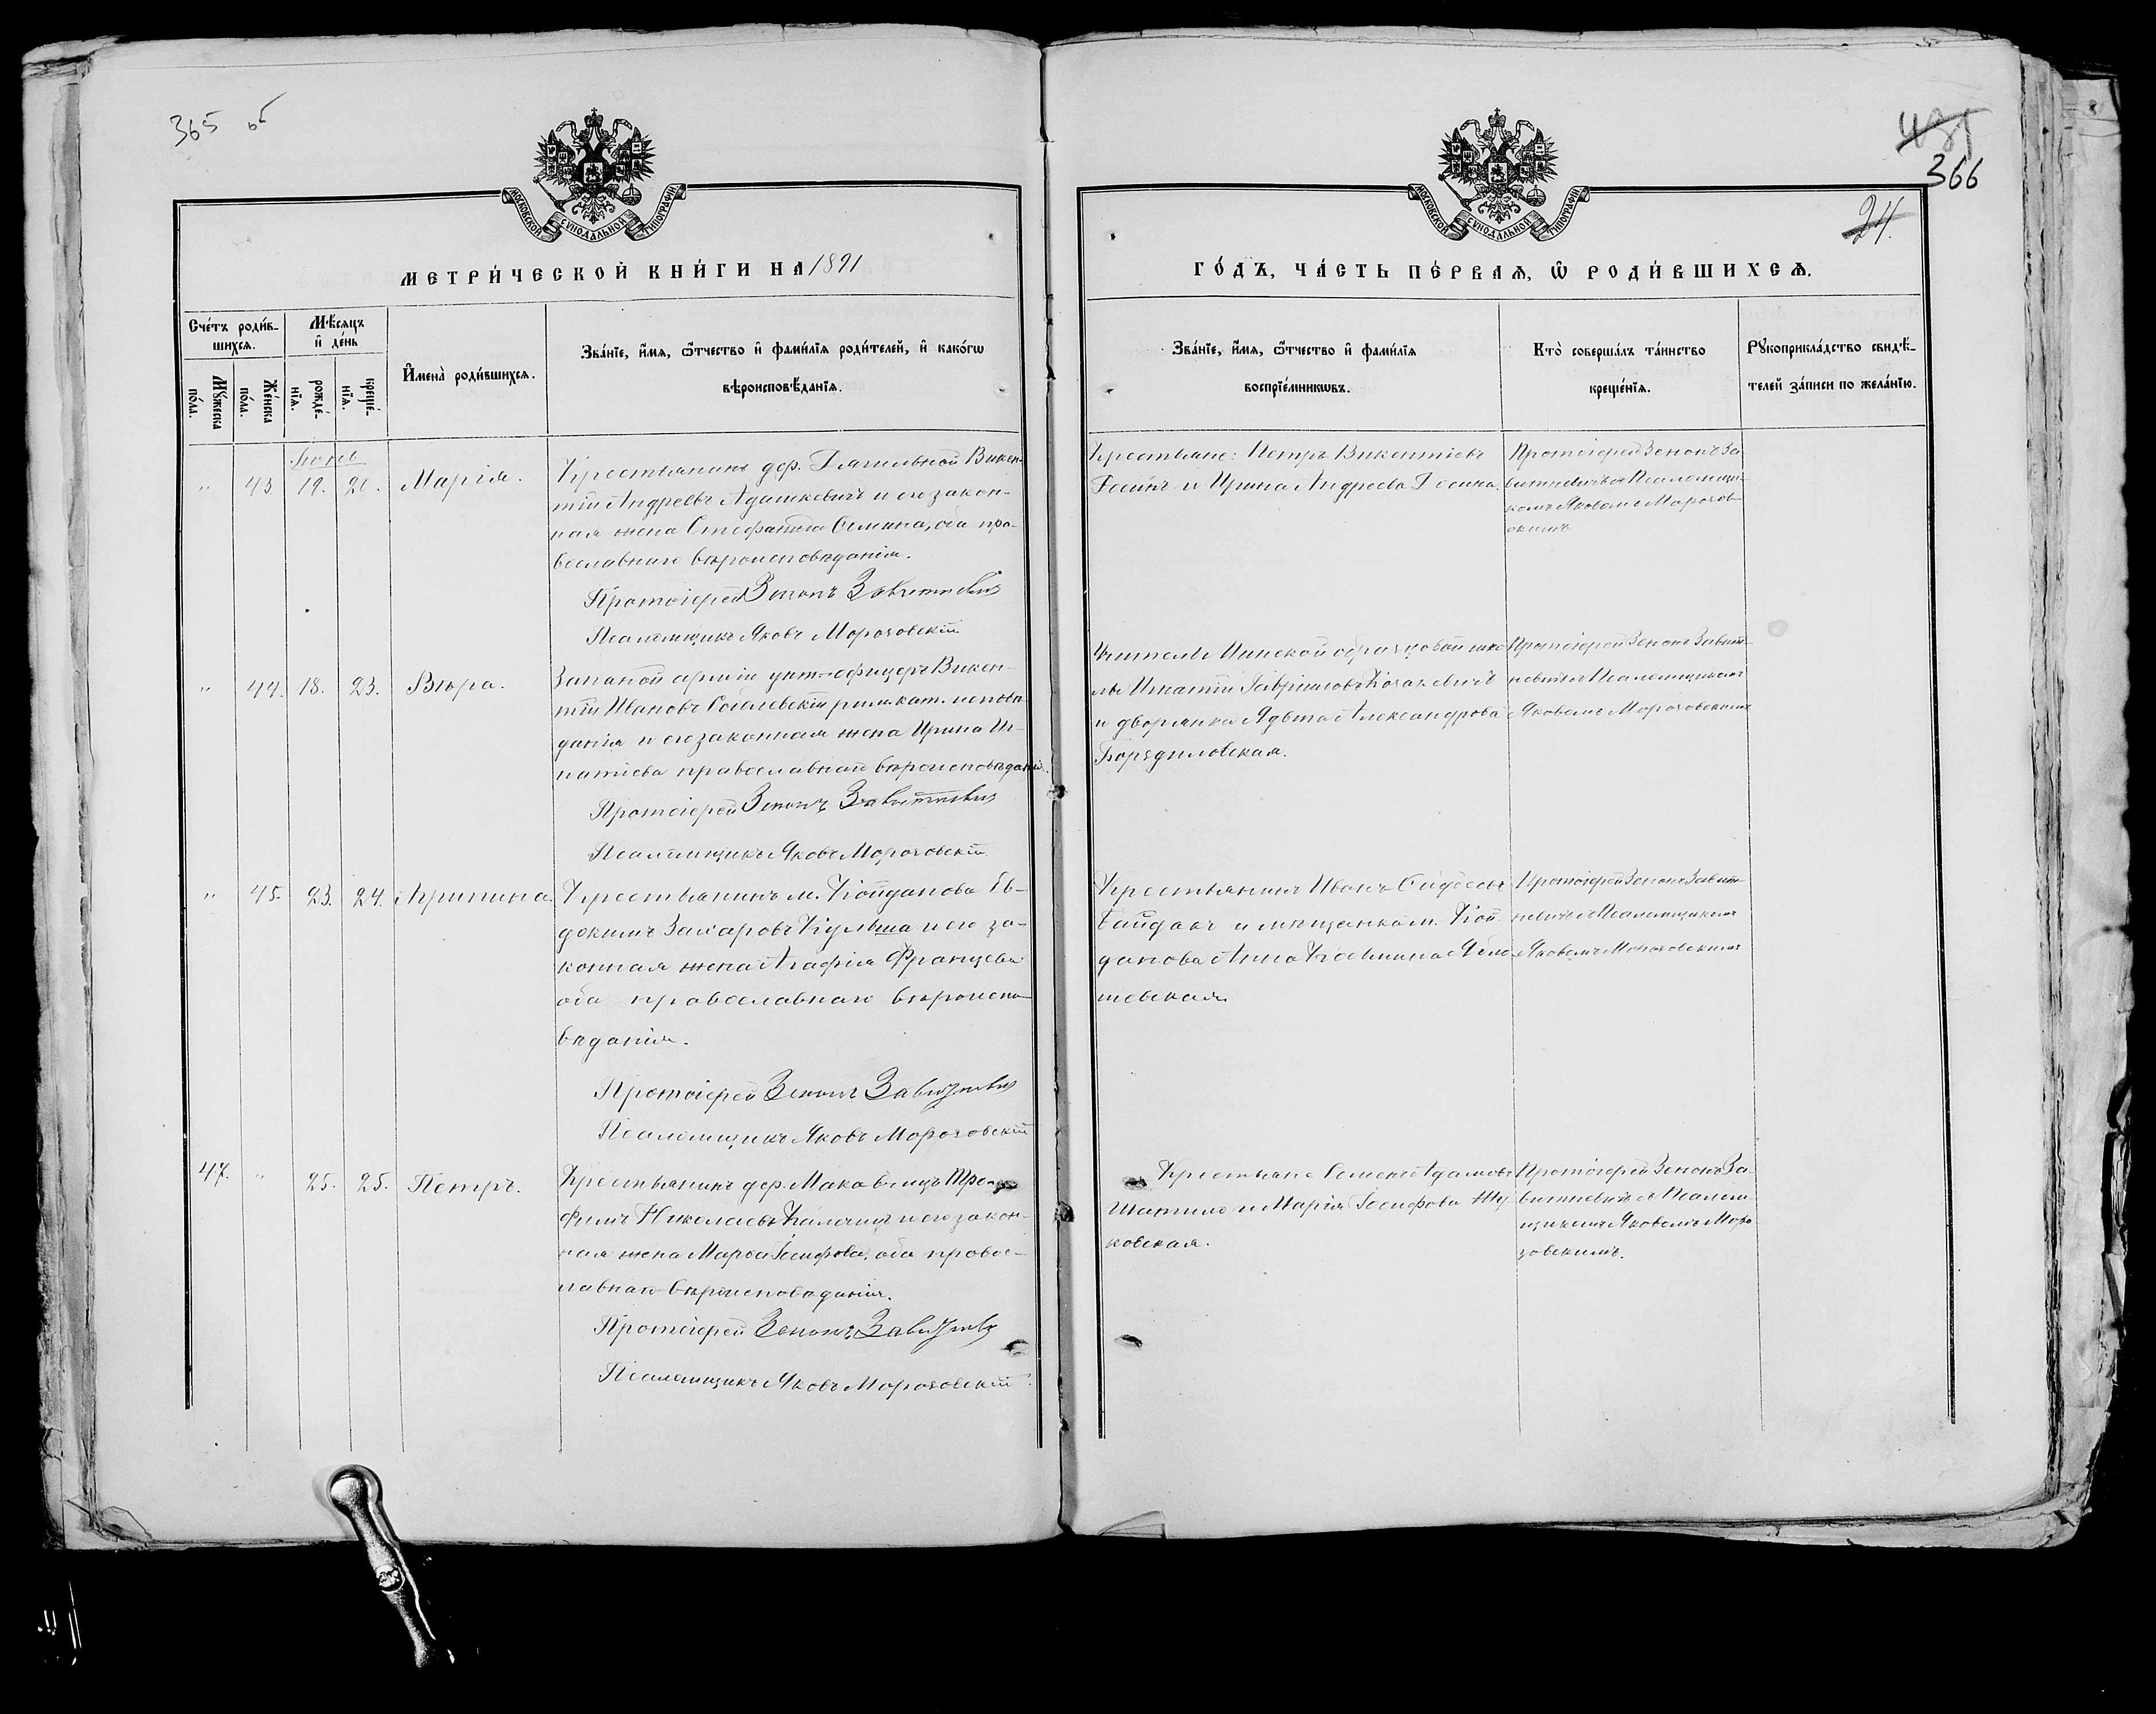 365 об
МОСКОВСКОЙ СѴНОДАЛЬНОЙ ТИПОГРАФІИ
МЕТРИ́ЧЕСКОЙ КНИ́ГИ НА 1891
Сче́тъ роди́в-
шихсѧ.
Мѣ́сѧцъ
и҆ де́нь
Мꙋ́жеска
по́ла.
Же́нска
по́ла.
рожде́-
нїѧ.
креще́-
нїѧ.
И҆мена̀ роди́вшихсѧ.
Зва́нїе, и҆́мѧ, ѻ҆́тчество и҆ фами́лїѧ роди́телей, и҆ како́гѡ
вѣроисповѣ́данїѧ.
" 43. 19. Марія.
Крестьянинъ дер. Викен-
тій Андреевъ Адашкевичъ и его закон-
ная жена Стефанія Осипова, оба пра-
вославнаго вѣроисповѣданія.
Протоіерей Зенонъ Завитневичъ
Псаломщикъ Яковъ Морозовскій
" 44. 18. 23. Вѣра.
Запасной арміи унт.-офицеръ Викен-
тій Ивановъ рим. кат. исповѣ-
данія и его законная жена Ирина Иг-
натіева православнаго вѣроисповѣданія.
Протоіерей Зенонъ Завитневичъ
Псаломщикъ Яковъ Морозовскій
" 45. 23. 24. Агрипина.
Крестьянинъ м. Койданова Ев-
докимъ Захаровъ Кульша и его за-
конная жена Агафія Францева
оба православнаго вѣроиспо-
вѣданія.
Протоіерей Зенонъ Завитневичъ
Псаломщикъ Яковъ Морозовскій
47. " 25. 25. Петръ.
Крестьянинъ дер. Маковищъ
Николаевъ и его закон-
ная жена Марія Іосифова, оба правос-
лавнаго вѣроисповѣданія.
Протоіерей Зенонъ Завитневичъ
Псаломщикъ Яковъ Морозовскій
366
24.
МОСКОВСКОЙ СѴНОДАЛЬНОЙ ТИПОГРАФІИ
ГО́ДЪ, ЧА́СТЬ ПЕ́РВАѦ, Ѽ РОДИ́ВШИХСѦ.
Зва́нїе, и҆́мѧ, ѻ҆́тчество и҆ фами́лїѧ
воспрїе́мникѡвъ.
Кто̀ соверша́лъ та́инство
креще́нїѧ.
Рꙋкоприкла́дство свидѣ́-
телей за́писи по жела́нїю.
Крестьяне: Петръ Викентіевъ
и Ирина Андреева
Протоіерей Зенонъ За-
витневичъ съ Псаломщи-
комъ Яковомъ Морозов-
скимъ
Учитель Минской образцовой шко-
лы Игнатій Гавріиловъ Козакевичъ
и дворянка Ядвига Александрова
Бориздиловская.
Протоіерей Зенонъ Завит-
невичъ съ Псаломщикомъ
Яковомъ Морозовскимъ
Крестьянинъ Иванъ
Байдакъ и мѣщанка м. Кой-
данова Анна
шевская
Протоіерей Зенонъ Завит-
невичъ съ Псаломщикомъ
Яковомъ Морозовскимъ
Крестьяне Семенъ Адамовъ
Шатило и Марія Іосифова Жу-
ковская.
Протоіерей Зенонъ За-
витневичъ съ Псалом-
щикомъ Яковомъ Моро-
зовскимъ.